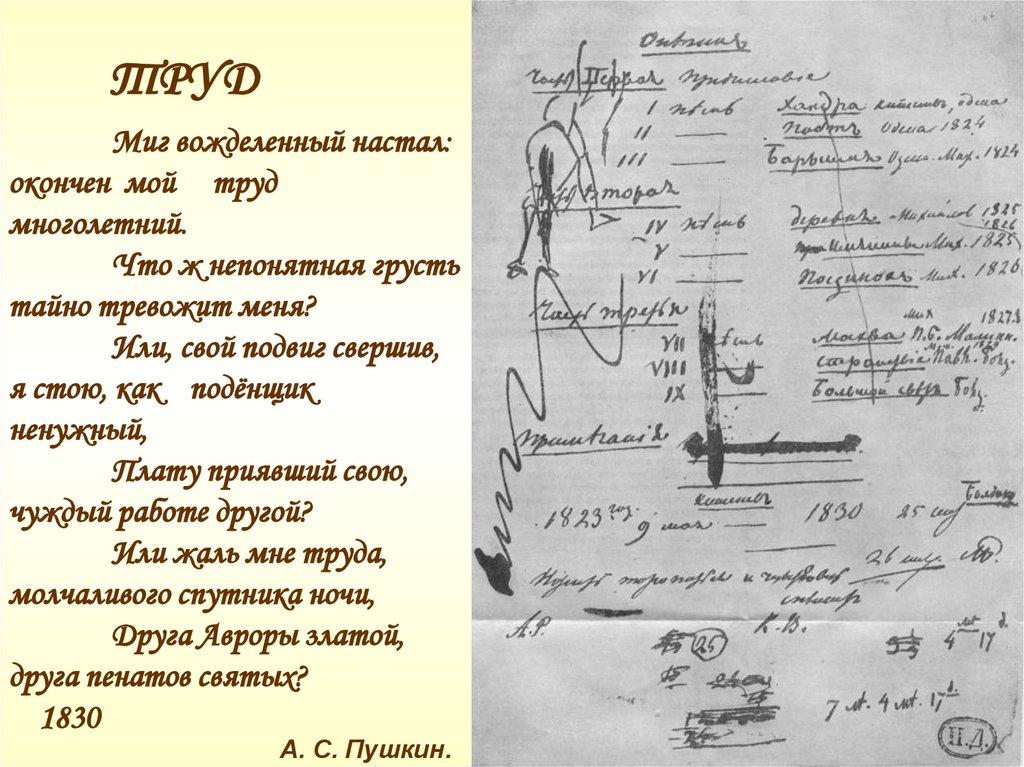 ТРУД
Миг вожделенный настал:
окончен мой труд
многолетний.
Что ж непонятная грусть
тайно тревожит меня?
Или, свой подвиг свершив,
я стою, как подёнщик
ненужный,
Плату приявший свою,
чуждый работе другой?
Или жаль мне труда,
молчаливого спутника ночи,
Друга Авроры златой,
друга пенатов святых?
1830
А. С. Пушкин.
Онѣгинъ
Часть Первая
I пѣснь Хандра Одесса
II Поэтъ Одесса 1824
III Барышня Одесса. Мих. 1824
Часть Вторая
IV пѣснь Деревня Михайлов 1825
1826
V Имянины Мих. 1825
VI Поединокъ Мих. 1826
Часть третья
VII пѣснь Москва Мих. П.Б. Малинн. 1827.8
VIII Странствие Павл. Болд.
IX Большой свѣтъ Болд.
Примѣчанія
1823 год 9 мая 1830 25 сент Болдино
26 сент. АП.
и
А.Р. К.В.
25
4 17
7 лѣт. 4 мѣс. 17 д.
П.Д.